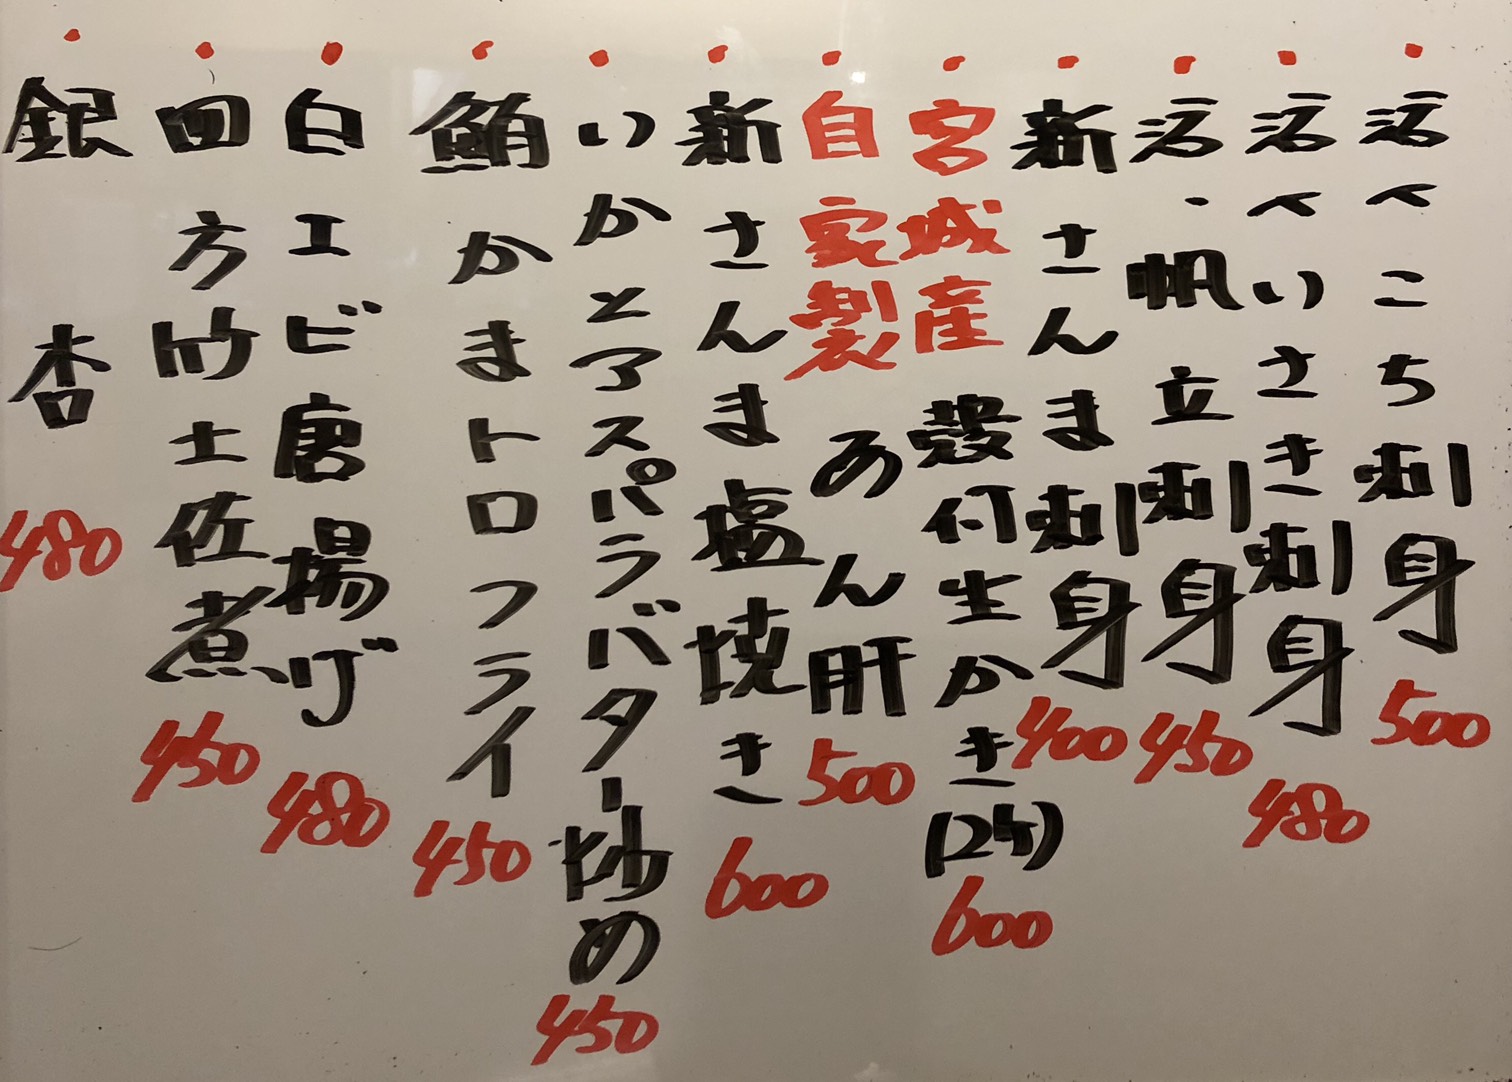 活〆こち刺身 500
活〆いさき刺身 480
活・帆立刺身 450
新さんま刺身 400
宮城産 殻付生かき(2ケ) 600
自家製 あん肝 500
新さんま塩焼き 600
いかとアスパラバター炒め 450
鮪かまトロフライ 450
白エビ唐揚げ 480
四方竹土佐煮 450
銀杏 480